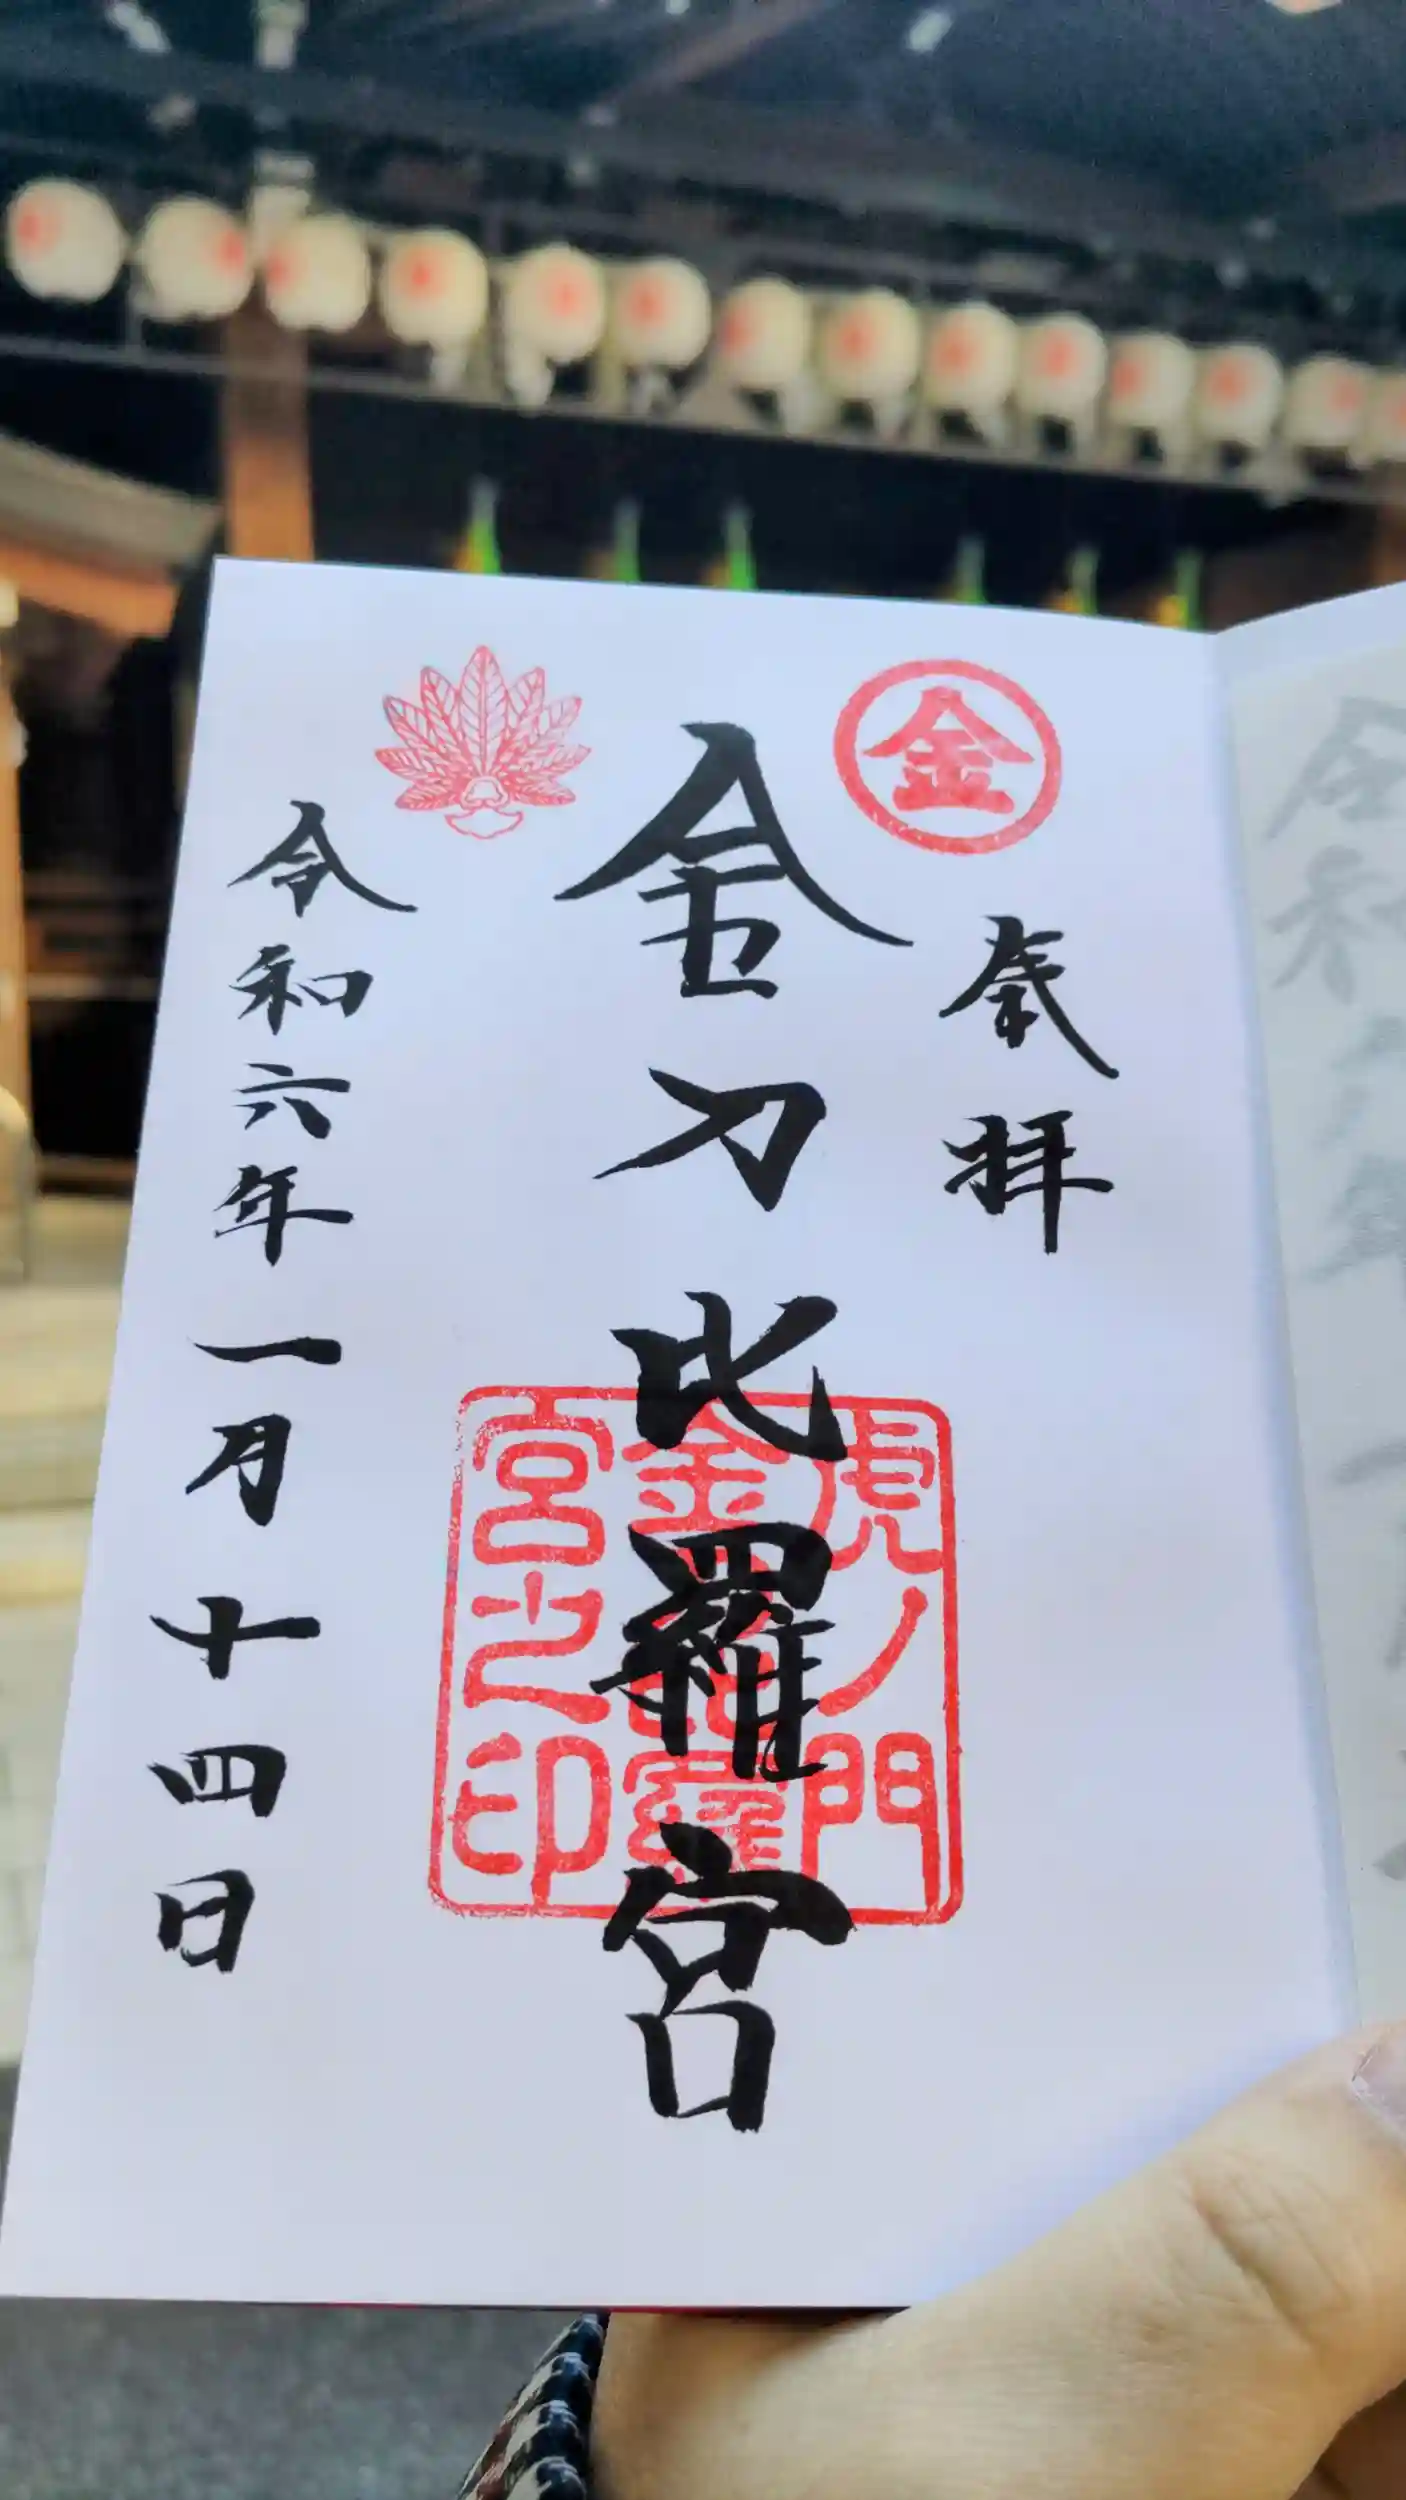 金
奉拝
金刀比羅宮
虎ノ門
金刀比羅
宮之印
令和六年一月十四日